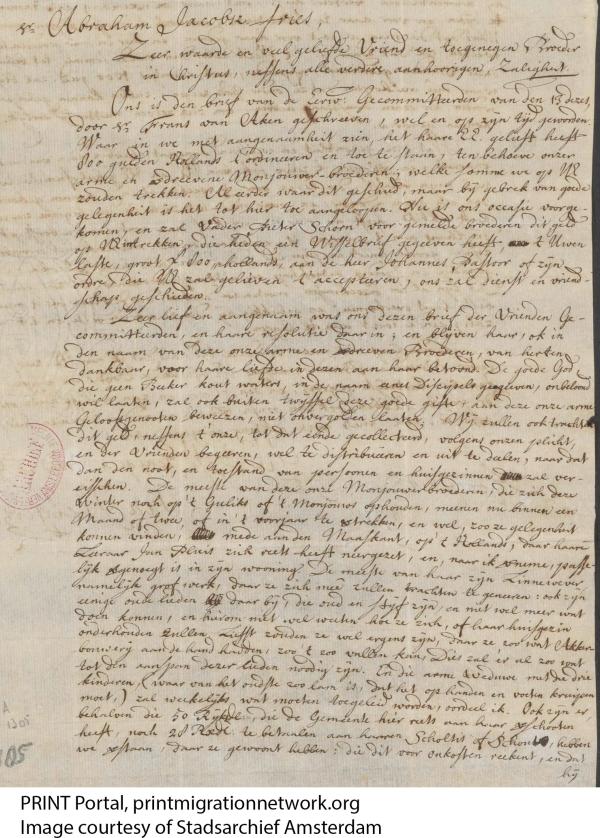 Sr. Abraham Jacobsz fries,
Zeer waarde en veel geliefde Vriend en toegenegen Broeder
in Christus, nessens alle verdere aanhoorigen, Zaligheit.
Ons is den brief van de Eerw: Gecommitteerden van den 13 dezes,
door Sr. Frans van Aken geschreeven, wel en op zijn tijt geworden.
Waar in we met aangenaamheit zien, het haare EE. gelieft heeft
800 gulden Hollands t'ordineren en toe te staan, ten behoeve onzer
arme en verdreevene Monjouwer-broederen; welke somme we op UE
zouden trekken. Al eerder waar dit geschied, maar bij gebrek van goede
gelegenheit is het tot hier toe aangeloopen. Nu is ons occasie voorge-
komen, en zal Vader Pieter Schorn voor gemelde broederen dit geld
op trekken, die heden een Wisselbrief gegeeven heeft t' Uwen
laste, groot 800, hollands, aan de heer Johannes Pastoor of zijn
ordre, die UE zal gelieven t'accepteeren, ons zal dienst en vriend-
schap geschieden.
Zeer lief en aangenaam was ons dezen brief der Vrienden Ge-
committeerden, en haare resolutie daar in; en blijven haar, ok in
den naam van deze onze arme en verdreven Broederen, van herten
dankbaar, voor haare liefde in dezen aan haar betoond. De goede God
die geen Beeker kout waters, in de naam eenes Discipels gegeeven, onbeloond
wil laaten, zal ook buiten twyffel deze goede gifte, aan deze onze arme
Geloofsgenooten beweezen, niet onvergolden laaten. Wij zullen ook trachten
dit geld, nessens t'onze, tot dat einde gecollecteerd, volgens onzen plicht,
en der Vrienden begeeren, wel te distribueeren en uit te deelen, naar dat
dan den noot, en toestand van persoonen en huisgezinnen zal ver-
eisschen. De meeste van deze onze Monjouwerbroederen, die zich deze
Winter noch op't Guliks of 't Monjouwes ophouden, meenen nu binnen een
Maand of twee, of in 't voorjaar te vertrekken, en wel, zoo ze gelegenheit
konnen vinden, mede aan den Maaskant, op't Hollands, daar haare
Leeraar Jan Pluis zich reets heeft neergezet, en, naar ik verneme, passe-
lijk vergenoegt is in zijn wooning. De meeste van haar zijn Linnewever
namelijk grof werk, daar ze zich mee zullen trachten te geneeren: ook zijn
eenige oude lieden daar bij, die oud en stijf zijn, en niet wel meer wat
doen konnen, en daarom niet wel weten hoe ze zich, of haar huisgezin
onderhouden zullen. Liefst zouden ze wel ergens zijn, daar ze zoo wat Akker-
bouwerij aan de hand hadden, zoo 't zoo vallen kan. Dies zal er al zoo wat
tot den aanspon dezer lieden noodig zijn. En die arme Weduwe met die drie
kinderen, (waar van het oudste zoo lam is, dat het op handen en voeten kruipen
moet,) zal wekelijks wat moeten toegeleid worden, oordeel ik. Ook zijn er,
behalven die 50 Rykdr. die de Gemeente hier reets van haar verschooten
heeft, noch 28 Rxdl. te betaalen aan haaren Scholtis of Schout, hebben
we verstaan, daar ze gewoont hebben: die dit voor onkosten reekent, en dat
bij
A
1305
PRINT Portal, printmigrationnetwork.org
Image courtesy of Stadsarchief Amsterdam